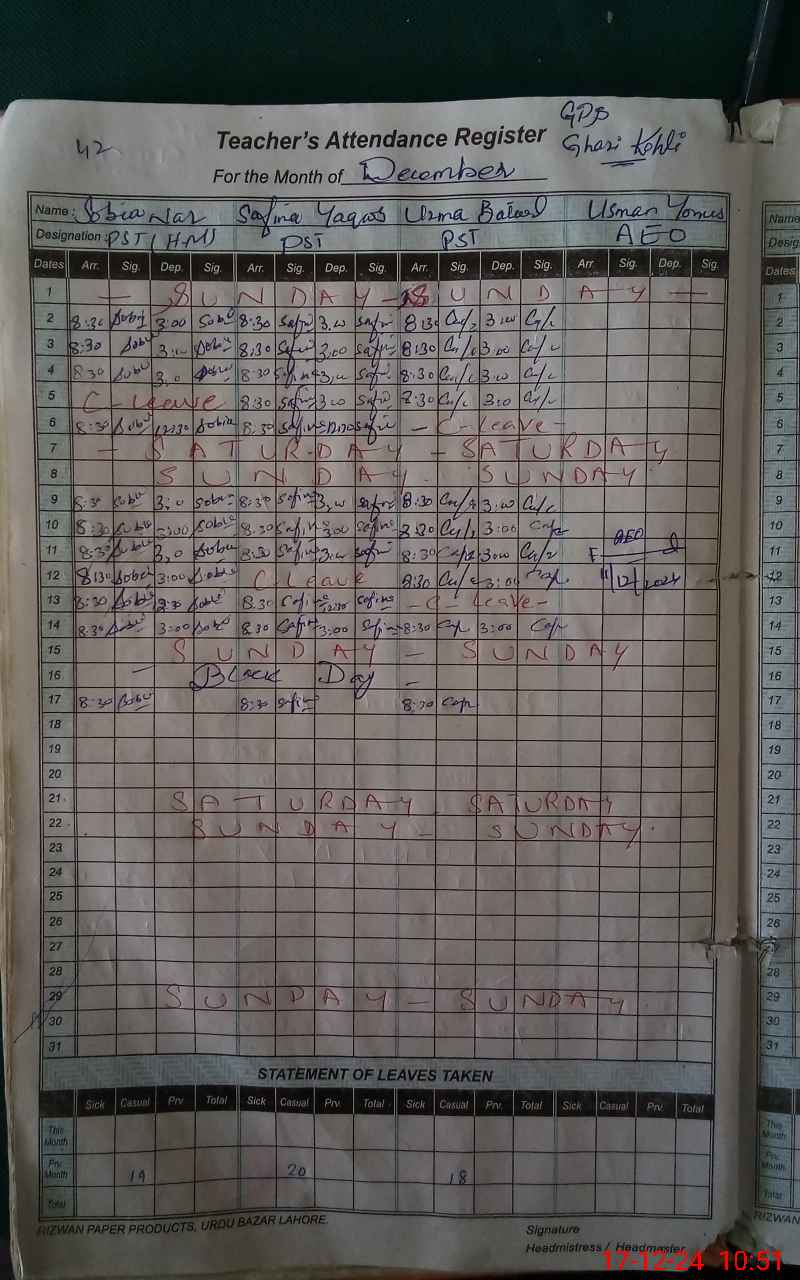 42
GPS
Ghazi Kohli
Teacher's Attendance Register
For the Month of December
Name : Sobia Naz Safina Yaqoob Uzma Batool Usman Younus
Designation : PST (HM) PST PST AEO
Dates Arr. Sig. Dep. Sig. Arr. Sig. Dep. Sig. Arr. Sig. Dep. Sig. Arr. Sig. Dep. Sig.
1 — SUNDAY — SUNDAY —
2 8:30 Sobia 3:00 Sobia 8:30 Safi 3:00 Safi 8:30 3:00
3 8:30 Sobia 3:00 Sobia 8:30 Safi 3:00 Safi 8:30 3:00
4 8:30 Sobia 3:0 Sobia 8:30 Safi 3:00 Safi 8:30 3:00
5 C-Leave 8:30 Safi 3:00 Safi 8:30 3:0
6 8:30 Sobia 12:30 Sobia 8:30 Safi 12:30 Safi - C-Leave -
7 - SATURDAY - SATURDAY
8 SUNDAY. SUNDAY.
9 8:30 Sobia 3:0 Sobia 8:30 Safina 3:00 Safi 8:30 3:00
10 8:30 Sobia 3:00 Sobia 8:30 Safin 3:00 Safina 8:30 3:00
AEO
11 8:30 Sobia 3:0 Sobia 8:30 Safi 3:00 Safi 8:30 3:00
12 8:30 Sobia 3:00 Sobia C Leave 8:30 3:00 11/12/2024
13 8:30 Sobia Sobia 8:30 Safina 12:30 Safina - C - Leave -
14 8:30 Sobia 3:00 Sobia 8:30 Safina 3:00 Safina 8:30 3:00
15 SUNDAY - SUNDAY
16 — Black Day —
17 8:30 Sobia 8:30 Safi 8:30
18
19
20
21 SATURDAY. SATURDAY
22 SUNDAY - SUNDAY.
23
24
25
26
27
28
29 SUNDAY - SUNDAY.
30
31
STATEMENT OF LEAVES TAKEN
Sick Casual Prv. Total Sick Casual Prv. Total Sick Casual Prv. Total Sick Casual Prv. Total
This Month
Prv. Month 19 20 18
Total
RIZWAN PAPER PRODUCTS, URDU BAZAR LAHORE.
Signature
Headmistress / Headmaster
17-12-24 10:51
Name
Desig
Dates
1
2
3
4
5
6
7
8
9
10
11
12
13
14
15
16
17
18
19
20
21
22
23
24
25
26
27
28
29
30
31
This Month
Prv. Month
Total
RIZWAN